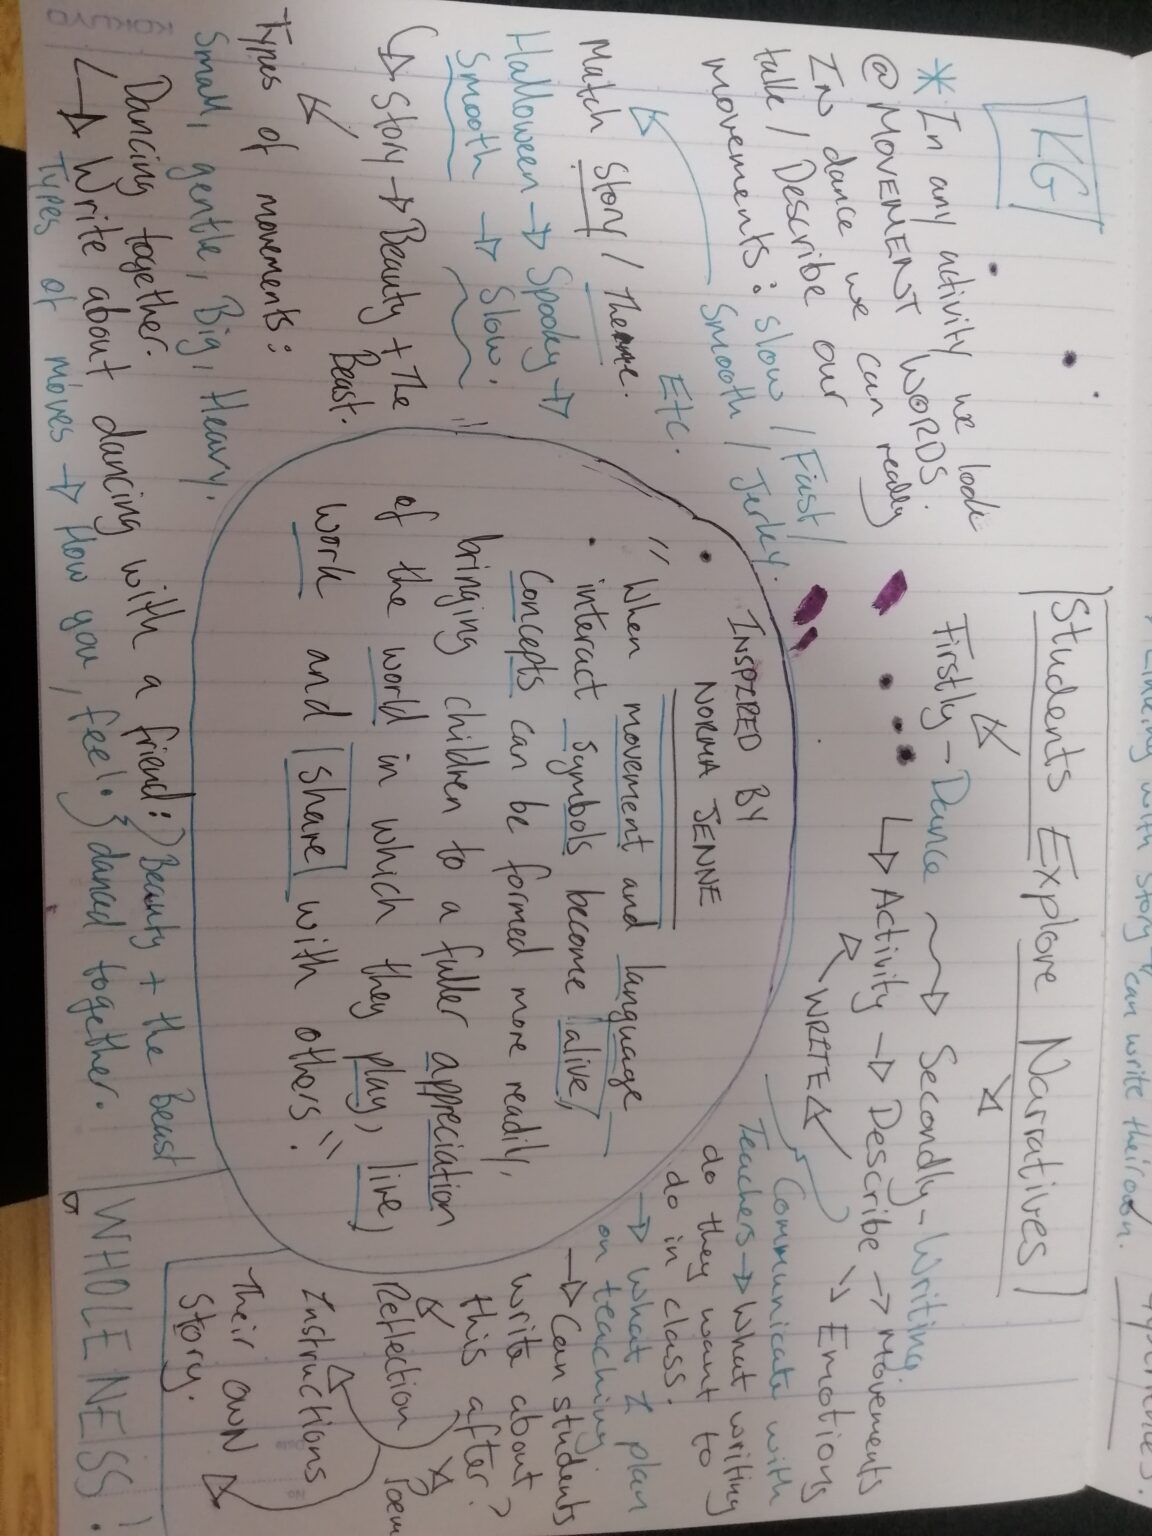 with story can write their own.
Students Explore Narratives
KG
Firstly - Dance → Secondly - Writing.
→ Activity → Describe → Movements
→ Emotions
WRITE
* In any activity we look
@ MOVEMENT WORDS
In dance we can really
talk / Describe our
movements: Slow / Fast /
Smooth / Jerky.
Etc.
Match Story / Theme.
Halloween → Spooky →
Smooth → Slow.
→ Story → Beauty + The
Beast.
Types of movements:
Small, gentle, Big, Heavy.
INSPIRED BY
NORMA JENNE
"When movement and language
interact symbols become alive,
Concepts can be formed more readily,
bringing children to a fuller appreciation
of the world in which they play, live,
work and share with others."
Communicate with
Teachers → What writing
do they want to
do in class.
→ What I plan
on teaching
→ Can students
write about
this after?
Reflection Poem
Instructions
Their own
Story.
Dancing together.
→ Write about dancing with a friend: Beauty + the Beast
Types of moves → How you feel: danced together.
WHOLENESS!
KOKUYO
Date
No